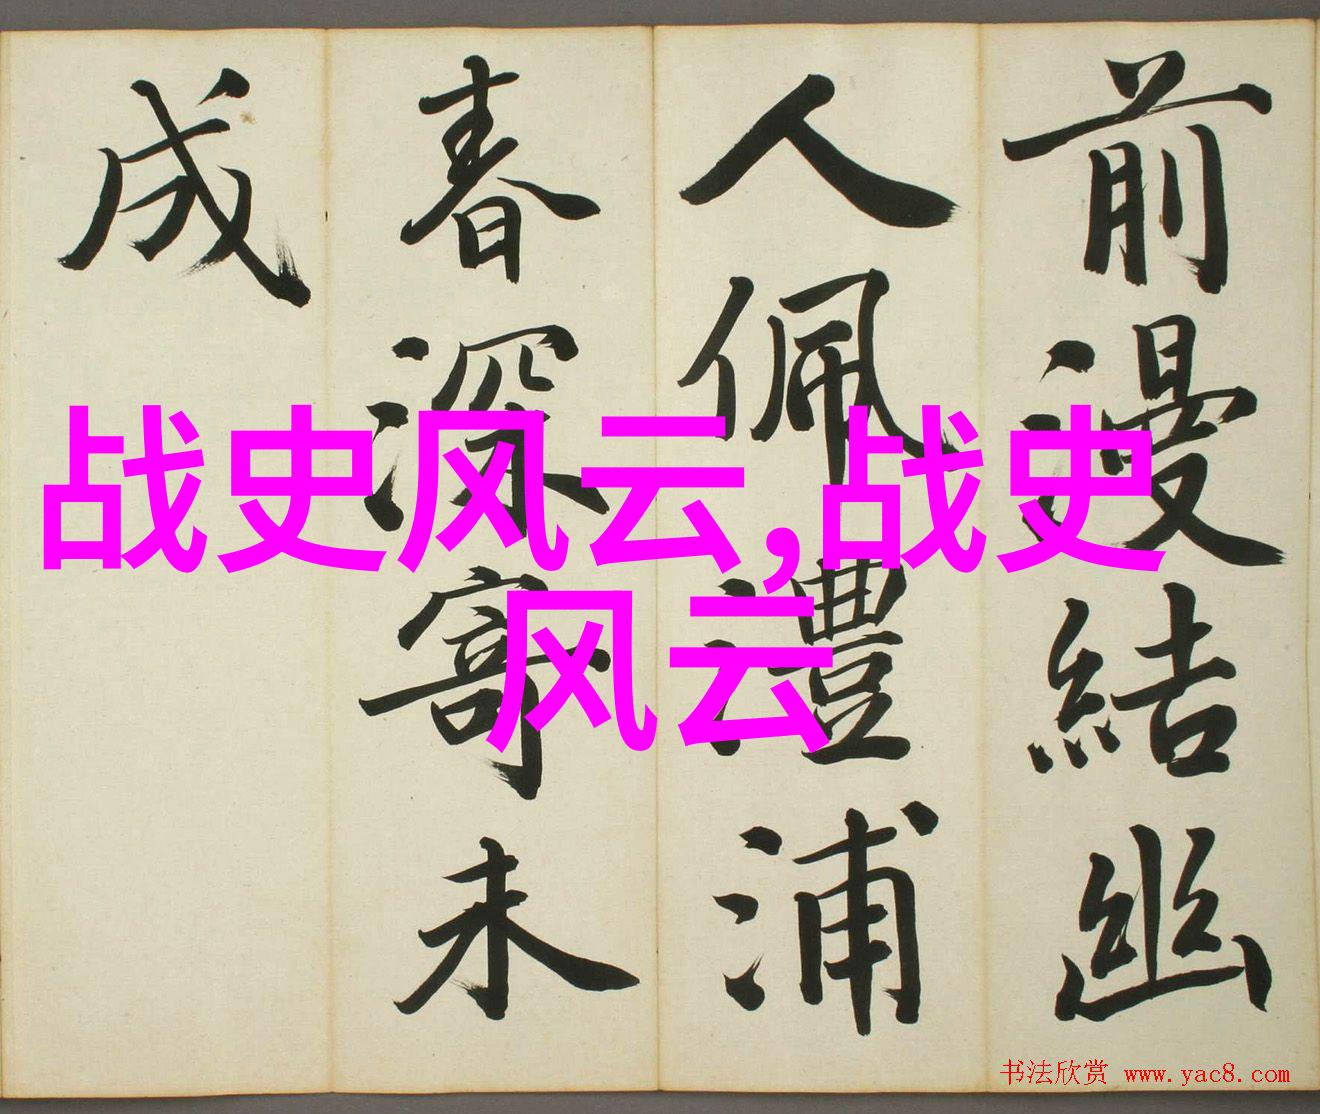 前漫結幽
人佩澧浦
春深寄未
成
战史风云,战史
风云
书法欣赏 www.yac8.com